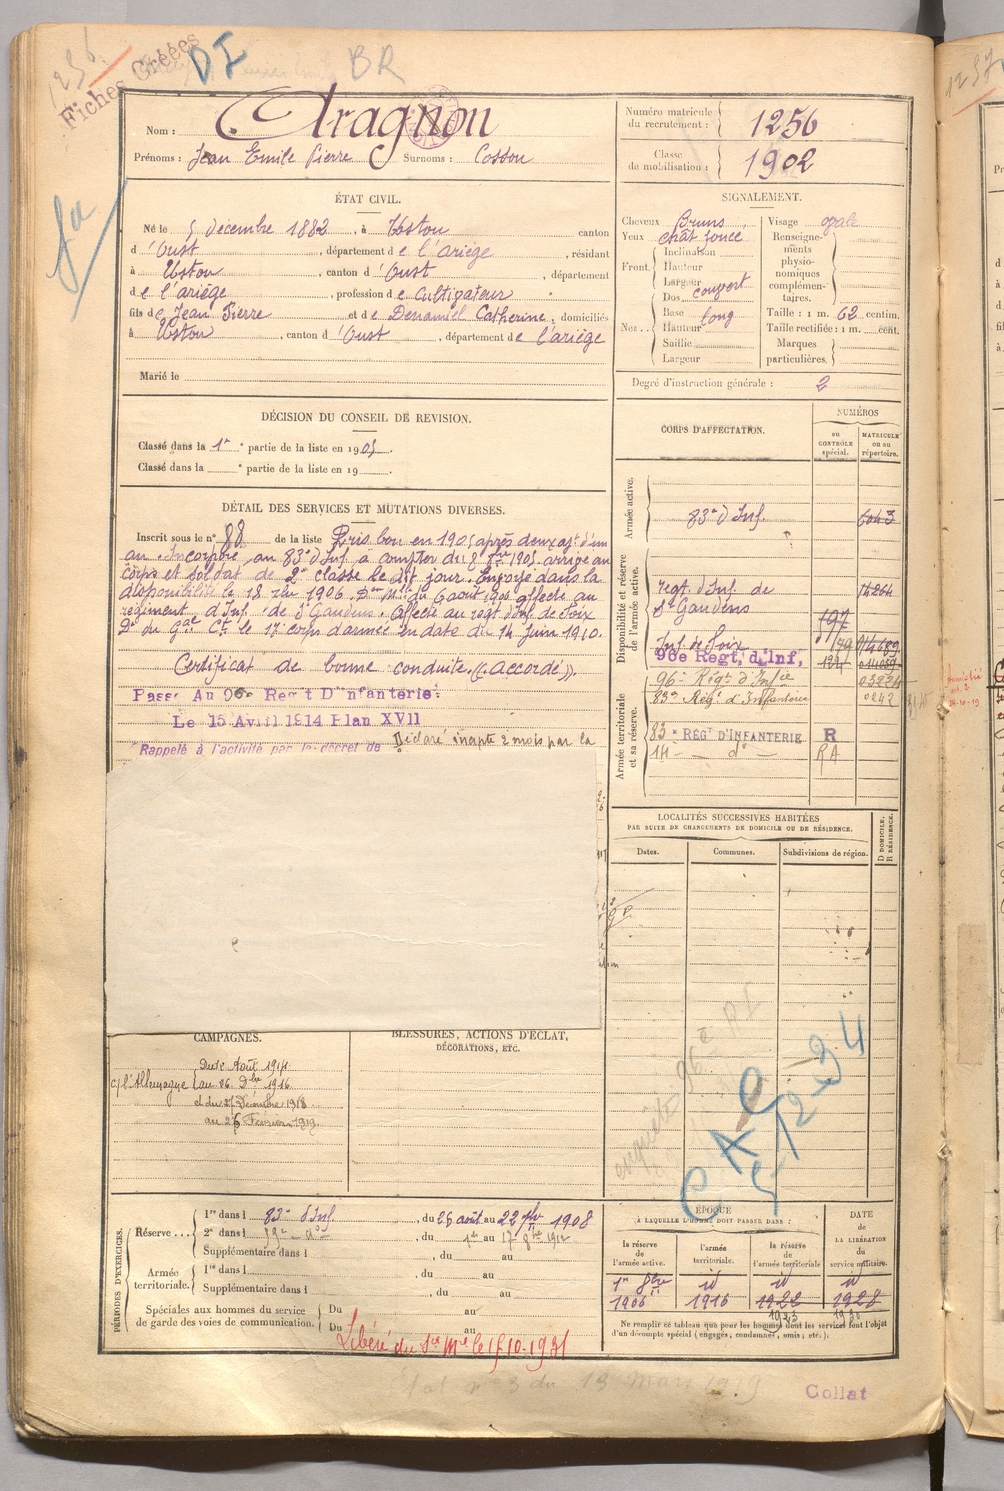 1256
Fiches Créées
DI
BR
fa
Nom : Aragnou
Prénoms : Jean Emile Pierre Surnoms : Cossou
Numéro matricule du recrutement : 1256
Classe de mobilisation : 1902
ÉTAT CIVIL.
Né le 5 décembre 1882, à Ustou canton
d'Oust, département de l'ariège, résidant
à Ustou, canton d'Oust, département
de l'ariège, profession de cultivateur
fils de Jean Pierre et de Denamiel Catherine, domiciliés
à Ustou, canton d'Oust, département de l'ariège
Marié le
SIGNALEMENT.
Cheveux Bruns
Yeux chât foncé
Front. Inclinaison
Hauteur
Largeur
Nez Dos couvert
Base long
Hauteur
Saillie
Largeur
Visage ovale
Renseignements physionomiques complémentaires.
Taille : 1 m. 62 centim.
Taille rectifiée : 1 m. cent.
Marques particulières.
Degré d'instruction générale : 2
DÉCISION DU CONSEIL DE REVISION.
Classé dans la 1re partie de la liste en 1905.
Classé dans la e partie de la liste en 19
DÉTAIL DES SERVICES ET MUTATIONS DIVERSES.
Inscrit sous le n° 88 de la liste Pris bon en 1905 après deux ajt d'un
an. Incorporé au 83e d'Inf. à compter du 8 8bre 1905 arrivé au
corps et soldat de 2e classe le dit jour. Envoyé dans la
disponibilité le 18 1906. affecté au
régiment d'Inf. de St Gaudens. Affecté au regt d'Inf. de Foix
Dn du Gal Ct le 17e corps d'armée en date du 14 Juin 1910.
Certificat de bonne conduite. (Accordé).
Passé Au 96e Regt D'infanterie
Le 15 Avril 1914 Plan XVII
Rappelé à l'activité par le décret de Déclaré inapte 2 mois par la
CORPS D'AFFECTATION.
NUMÉROS
au CONTRÔLE spécial.
MATRICULE ou au répertoire.
Armée active.
83e d'Inf. 6043
Disponibilité et réserve de l'armée active.
regt. d'Inf. de St Gaudens 14264
197
Inf de Foix 179
96e Regt, d'Inf,
96e Régt d'Infie
83e Régt d'Infanterie 0242
Armée territoriale et sa réserve.
83e RÉGt D'INFANTERIE R
14e do RA
LOCALITÉS SUCCESSIVES HABITÉES
PAR SUITE DE CHANGEMENTS DE DOMICILE OU DE RÉSIDENCE.
Dates. Communes. Subdivisions de région.
D DOMICILE. R RÉSIDENCE.
enquête 96e
CAC
5-12-34
CAMPAGNES.
c/ l'Allemagne
Août 1914
au 26 Dbre 1916
et du 27 Décembre 1918
au 26 Février 1919
BLESSURES, ACTIONS D'ÉCLAT,
DÉCORATIONS, ETC.
PÉRIODES D'EXERCICES.
Réserve ... 1re dans l 83e d'Inf., du 26 août au 22 7bre 1908
2e dans l, du 1er au 17 8bre 1912
Supplémentaire dans l, du au
Armée territoriale. 1re dans l, du au
Supplémentaire dans l, du au
Spéciales aux hommes du service de garde des voies de communication. Du au
Du au
Libéré du Sce Mre le 15-10-1931
ÉPOQUE
À LAQUELLE L'HOMME DOIT PASSER DANS :
la réserve de l'armée active.
l'armée territoriale.
la réserve de l'armée territoriale
DATE DE LA LIBÉRATION du service militaire.
1er 8bre id id id
1906 1916 1922 1928
1923 1930
Ne remplir ce tableau que pour les hommes dont les services font l'objet
d'un décompte spécial (engagés, condamnés, omis, etc.).
Etat n° 3 du 13 mars 1919
Collat